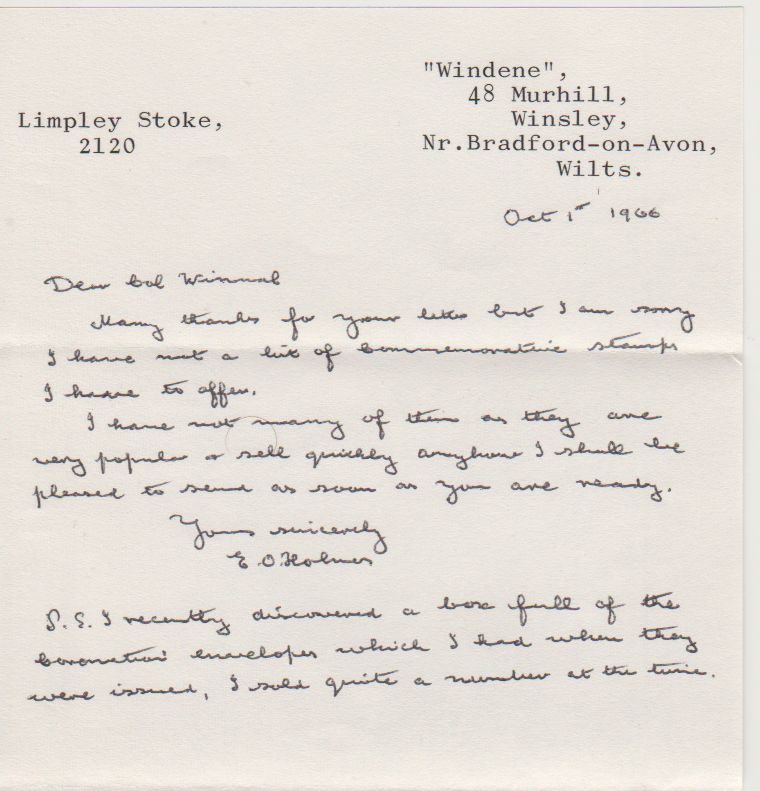 "Windene",
48 Murhill,
Limpley Stoke, Winsley,
2120 Nr.Bradford-on-Avon,
Wilts.
Oct 1st 1966
Dear Col Winnal
Many thanks for your letter but I am sorry
I have not a list of Commemorative stamps
I have to offer.
I have not many of them as they are
very popular & sell quickly anyhow I shall be
pleased to send as soon as you are ready.
Yours sincerely
E. O. Holmes
P.S. I recently discovered a box full of the
Coronation envelopes which I had when they
were issued, I sold quite a number at the time.